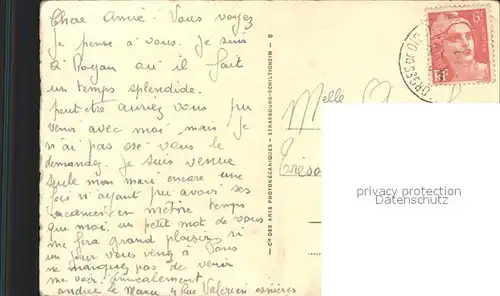 Chere Amie. Vous voyez
je pense à vous. Je suis
à Royan ou il fait
un temps splendide.
peut-etre auriez vous pu
venir avec moi, mais je
n'ai pas osé vous le
demander. Je suis venue
seule mon mari encore une
fois n'ayant pu avoir ses
vacances en même temps
que moi. un petit mot de vous
me fera grand plaisir si
un jour vous venez à Paris
ne manquez pas de venir
me voir. amicalement
rue Valerien asnières
Melle
Tréso
Cie DES ARTS PHOTOMÉCANIQUES - STRASBOURG-SCHILTIGHEIM - 8
privacy protection
Venduehuis.com
6F